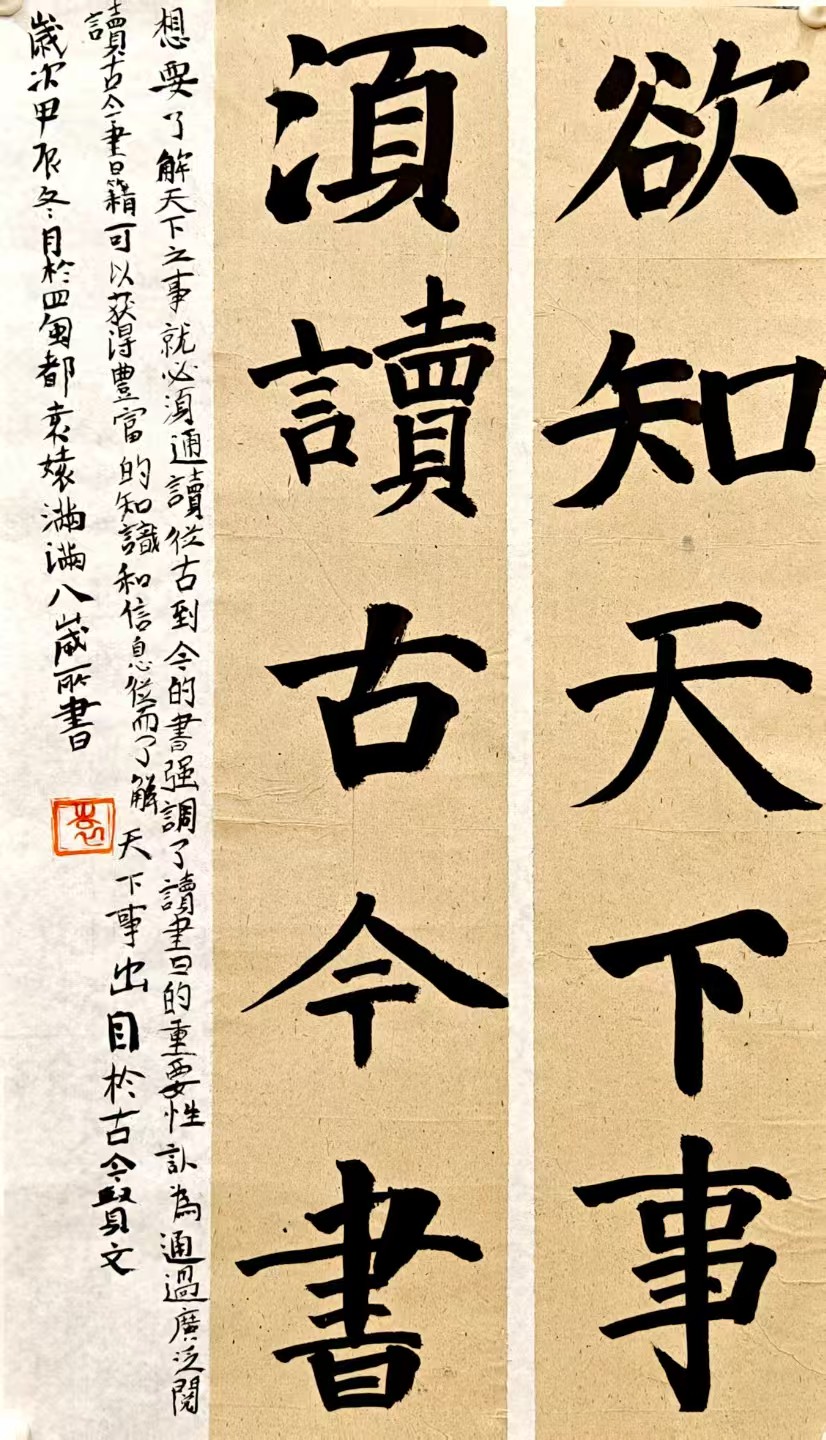 欲知天下事
須讀古今書
想要了解天下之事就必須通讀從古到今的書强調了讀書的重要性認為通過廣泛閱
讀古今書籍可以获得豐富的知識和信息從而了解天下事出自於古今賢文
歲次甲辰冬月於四會都袁媴滿滿八歲所書
袁